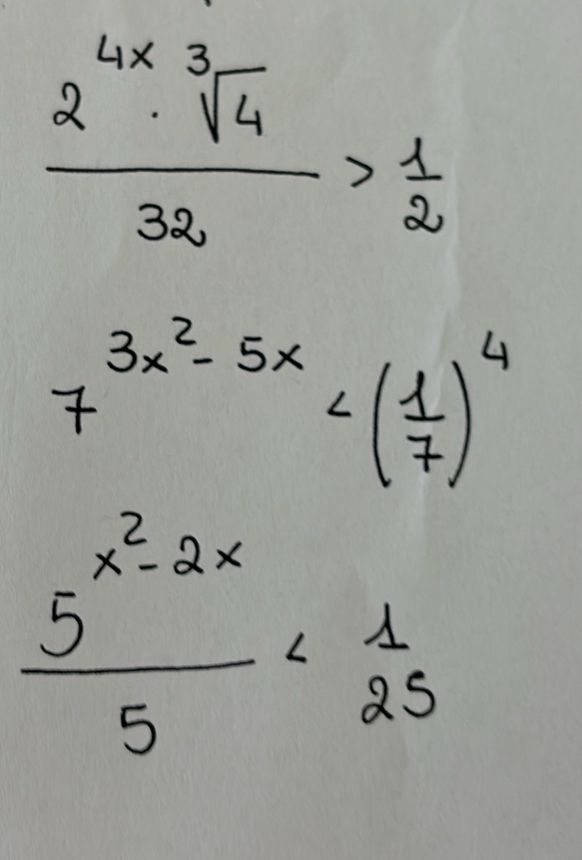 2^{4x} · ∛4 / 32 > 1/2
7^{3x² - 5x} < (1/7)^4
5^{x² - 2x} / 5 < 1/25